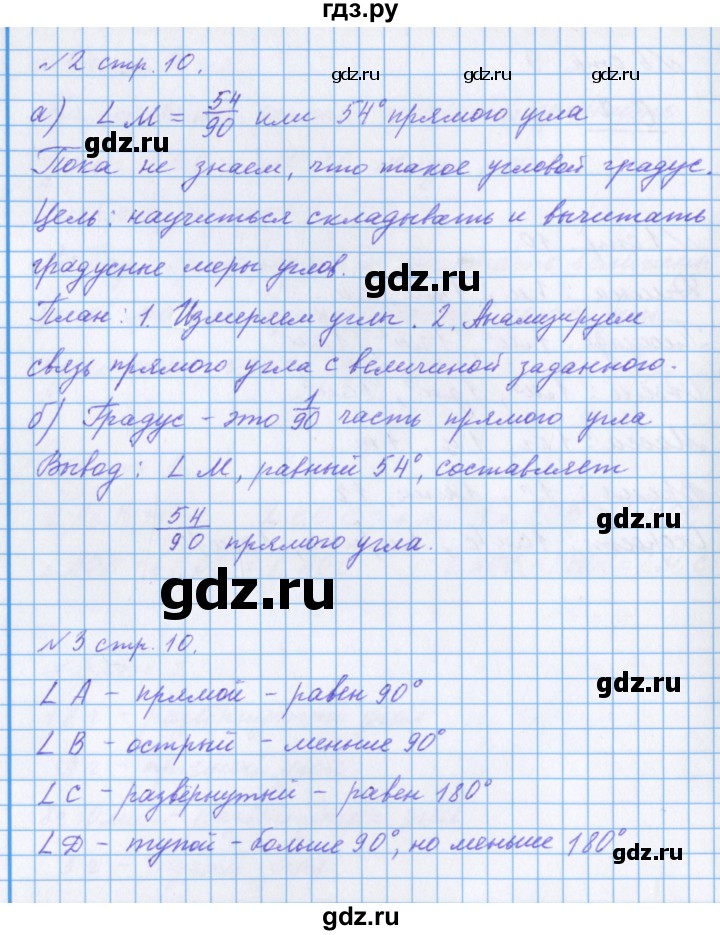 гдз.ру
№2 стр. 10.
gdz.ru gdz.ru
а) ∠ M = 54/90 или 54° прямого угла
gdz.ru gdz.ru
Пока не знаем, что такое угловой градус.
Цель: научиться складывать и вычитать
градусные меры углов.
gdz.ru
План: 1. Измеряем углы. 2. Анализируем
связь прямого угла с величиной заданного.
б) Градус - это 1/90 часть прямого угла
gdz.ru gdz.ru
Вывод: ∠ M, равный 54°, составляет
54/90 прямого угла.
gdz.ru
gdz.ru
№3 стр. 10.
∠ A - прямой - равен 90°
gdz.ru
∠ B - острый - меньше 90°
gdz.ru
∠ C - развёрнутый - равен 180°
∠ D - тупой - больше 90°, но меньше 180°
gdz.ru
gdz.ru